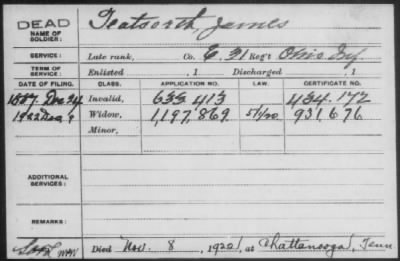 DEAD Teatsorth, James
NAME OF SOLDIER:
SERVICE: Late rank, Co. E. 31 Reg't Ohio Inf
TERM OF SERVICE: Enlisted , 1 Discharged , 1
DATE OF FILING. CLASS. APPLICATION NO. LAW. CERTIFICATE NO.
1887 Dec 24 Invalid, 635 413 434.172
1922 Dec 9 Widow, 1,197,869 5/1/20 931676
Minor,
ADDITIONAL SERVICES:
REMARKS:
Died Nov. 8, 1922, at Chattanooga, Tenn